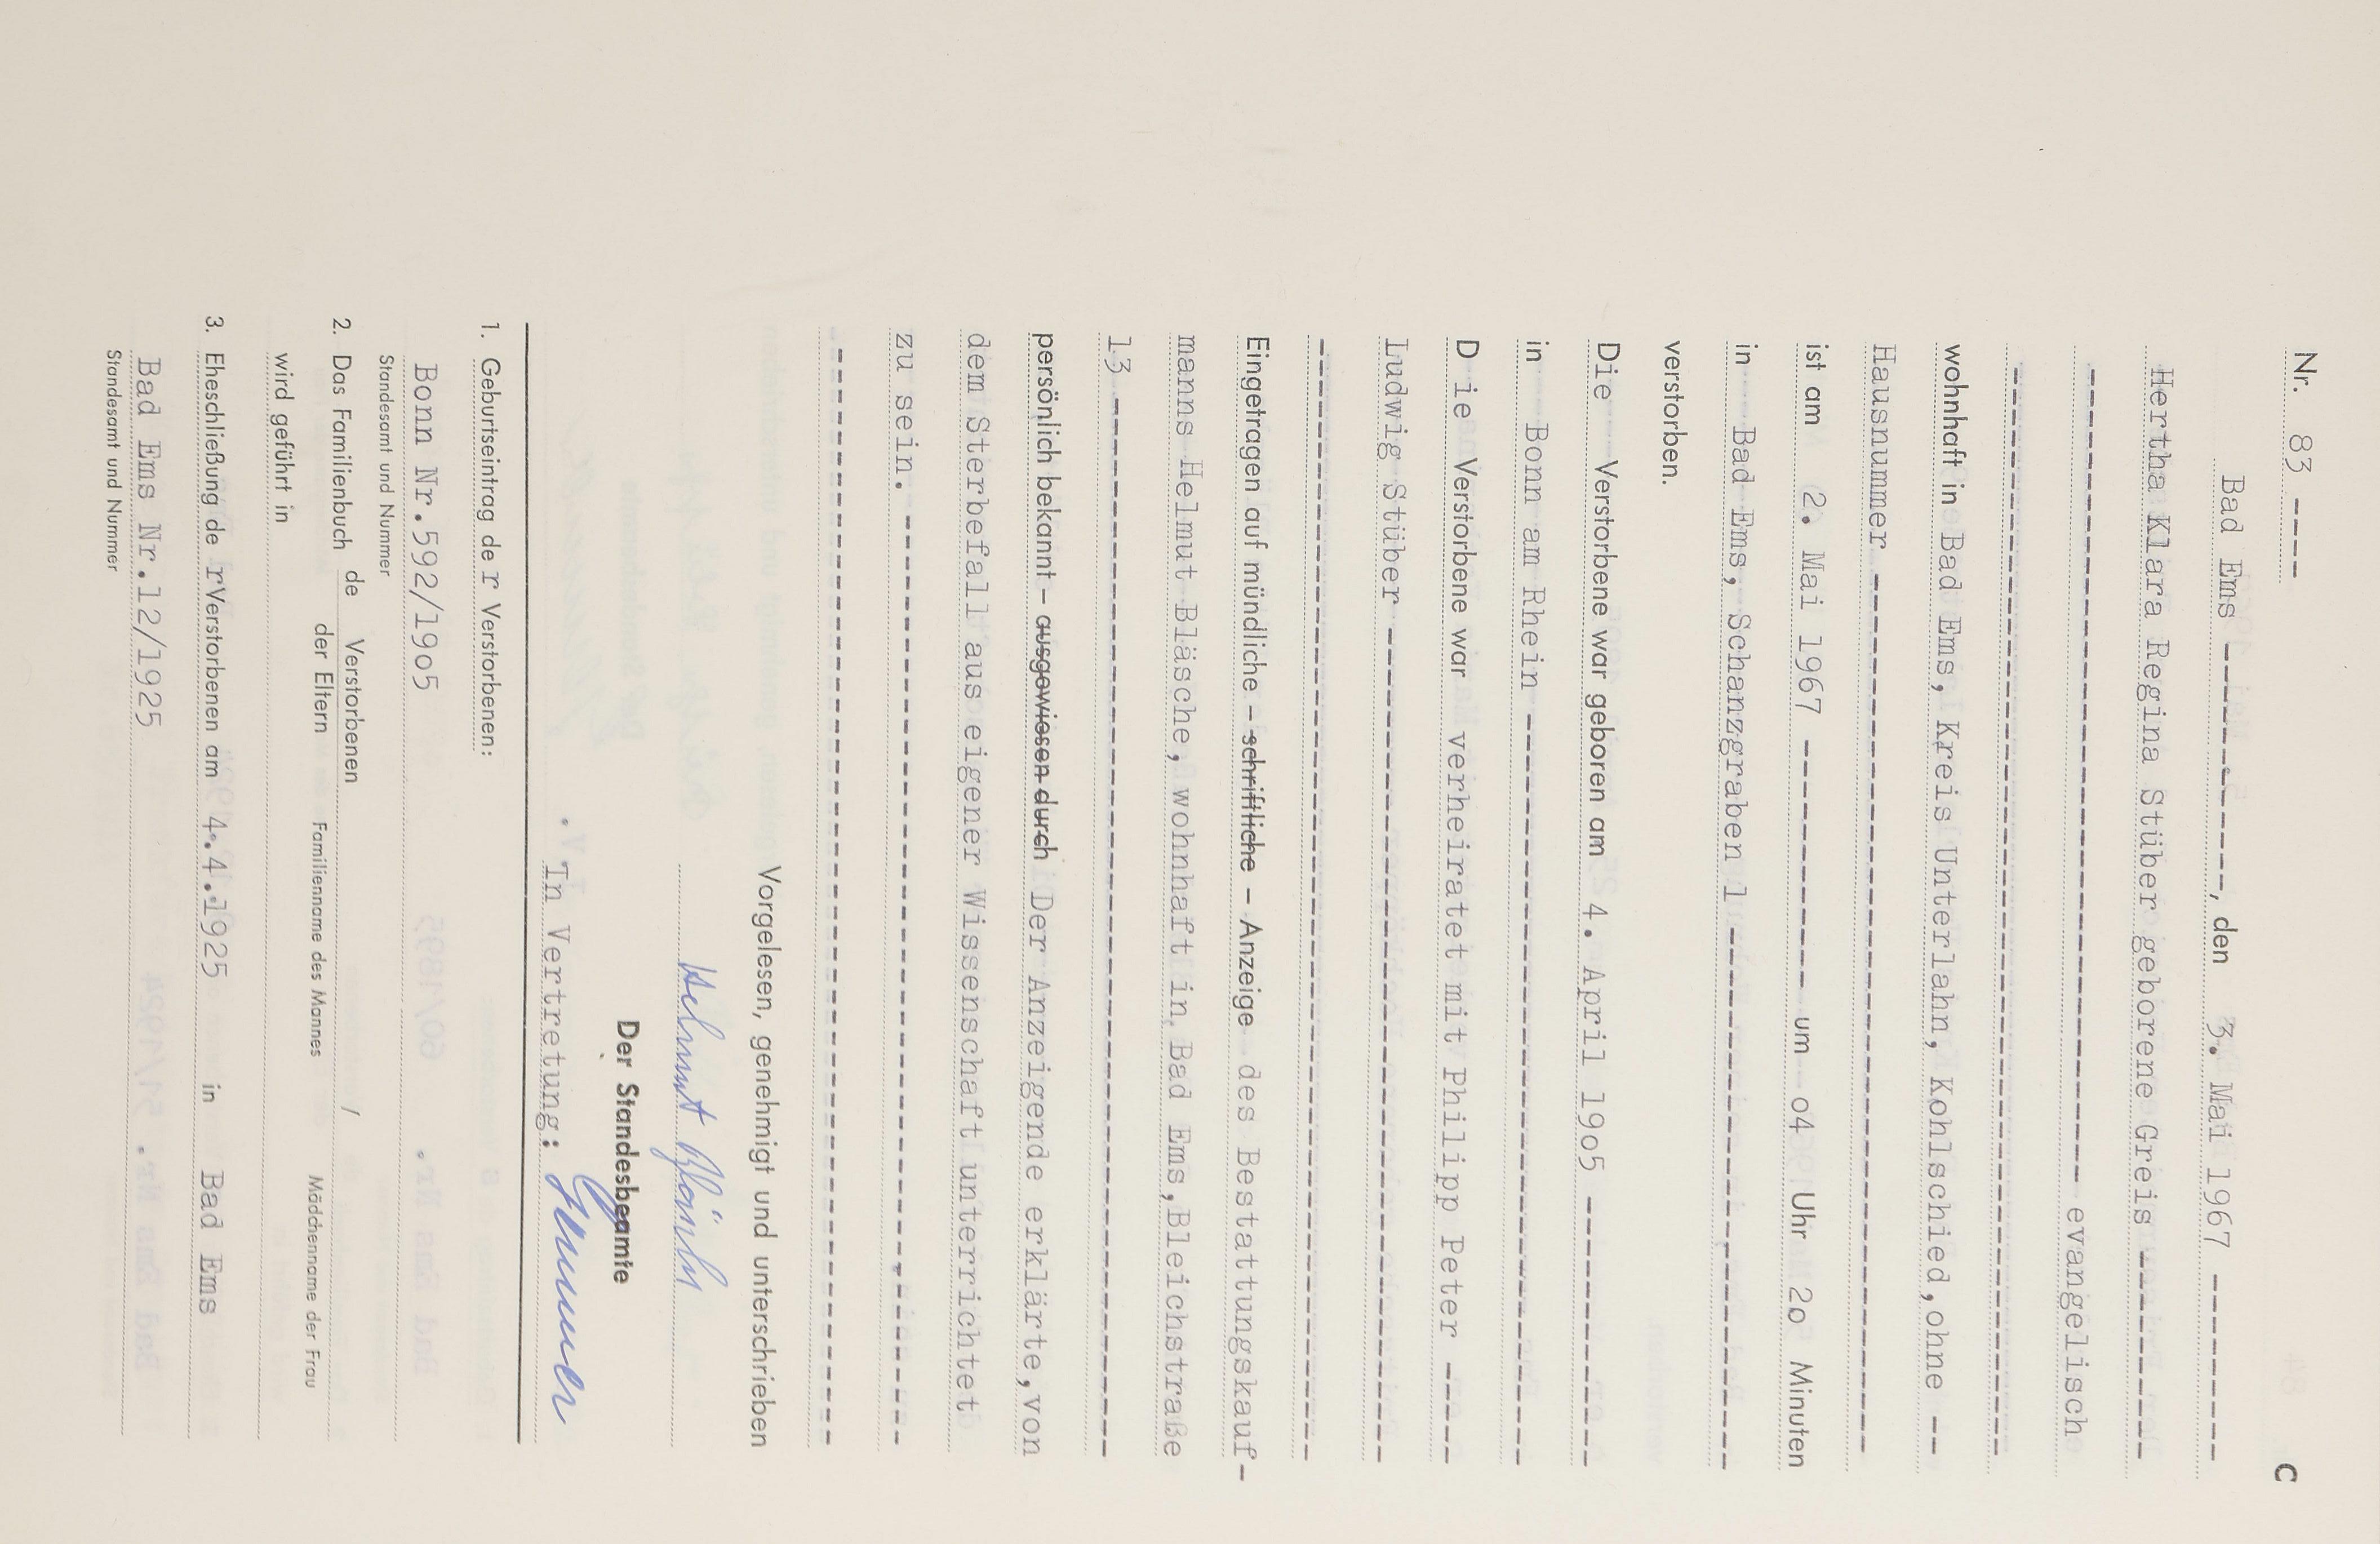 C
Nr. 83 ----
Bad Ems ------------, den 3. Mai 1967 --------
Hertha Klara Regina Stüber geborene Greis ---------
------------------------------------ evangelisch
------------------------------------------------
wohnhaft in Bad Ems, Kreis Unterlahn, Kohlschied,ohne --
Hausnummer -----------------------------------------
ist am 2. Mai 1967 ------------ um o4 Uhr 2o Minuten
in Bad Ems, Schanzgraben 1 -------------------------
verstorben.
Die Verstorbene war geboren am 4. April 19o5 ------------
in Bonn am Rhein ----------------------------------
D ie Verstorbene war verheiratet mit Philipp Peter -----
Ludwig Stüber --------------------------------------
--------------------------------------------------
Eingetragen auf mündliche – schriftliche – Anzeige des Bestattungskauf-
manns Helmut Bläsche, wohnhaft in Bad Ems,Bleichstraße
13 -----------------------------------------------
persönlich bekannt – ausgewiesen durch Der Anzeigende erklärte,von
dem Sterbefall aus eigener Wissenschaft unterrichtet
zu sein. -----------------------------------------
--------------------------------------------------
Vorgelesen, genehmigt und unterschrieben
Helmut Bläsche
Der Standesbeamte
In Vertretung:
1. Geburtseintrag de r Verstorbenen:
Bonn Nr.592/19o5
Standesamt und Nummer
2. Das Familienbuch de Verstorbenen /
der Eltern Familienname des Mannes Mädchenname der Frau
wird geführt in
3. Eheschließung de rVerstorbenen am 4.4.1925 in Bad Ems
Bad Ems Nr.12/1925
Standesamt und Nummer